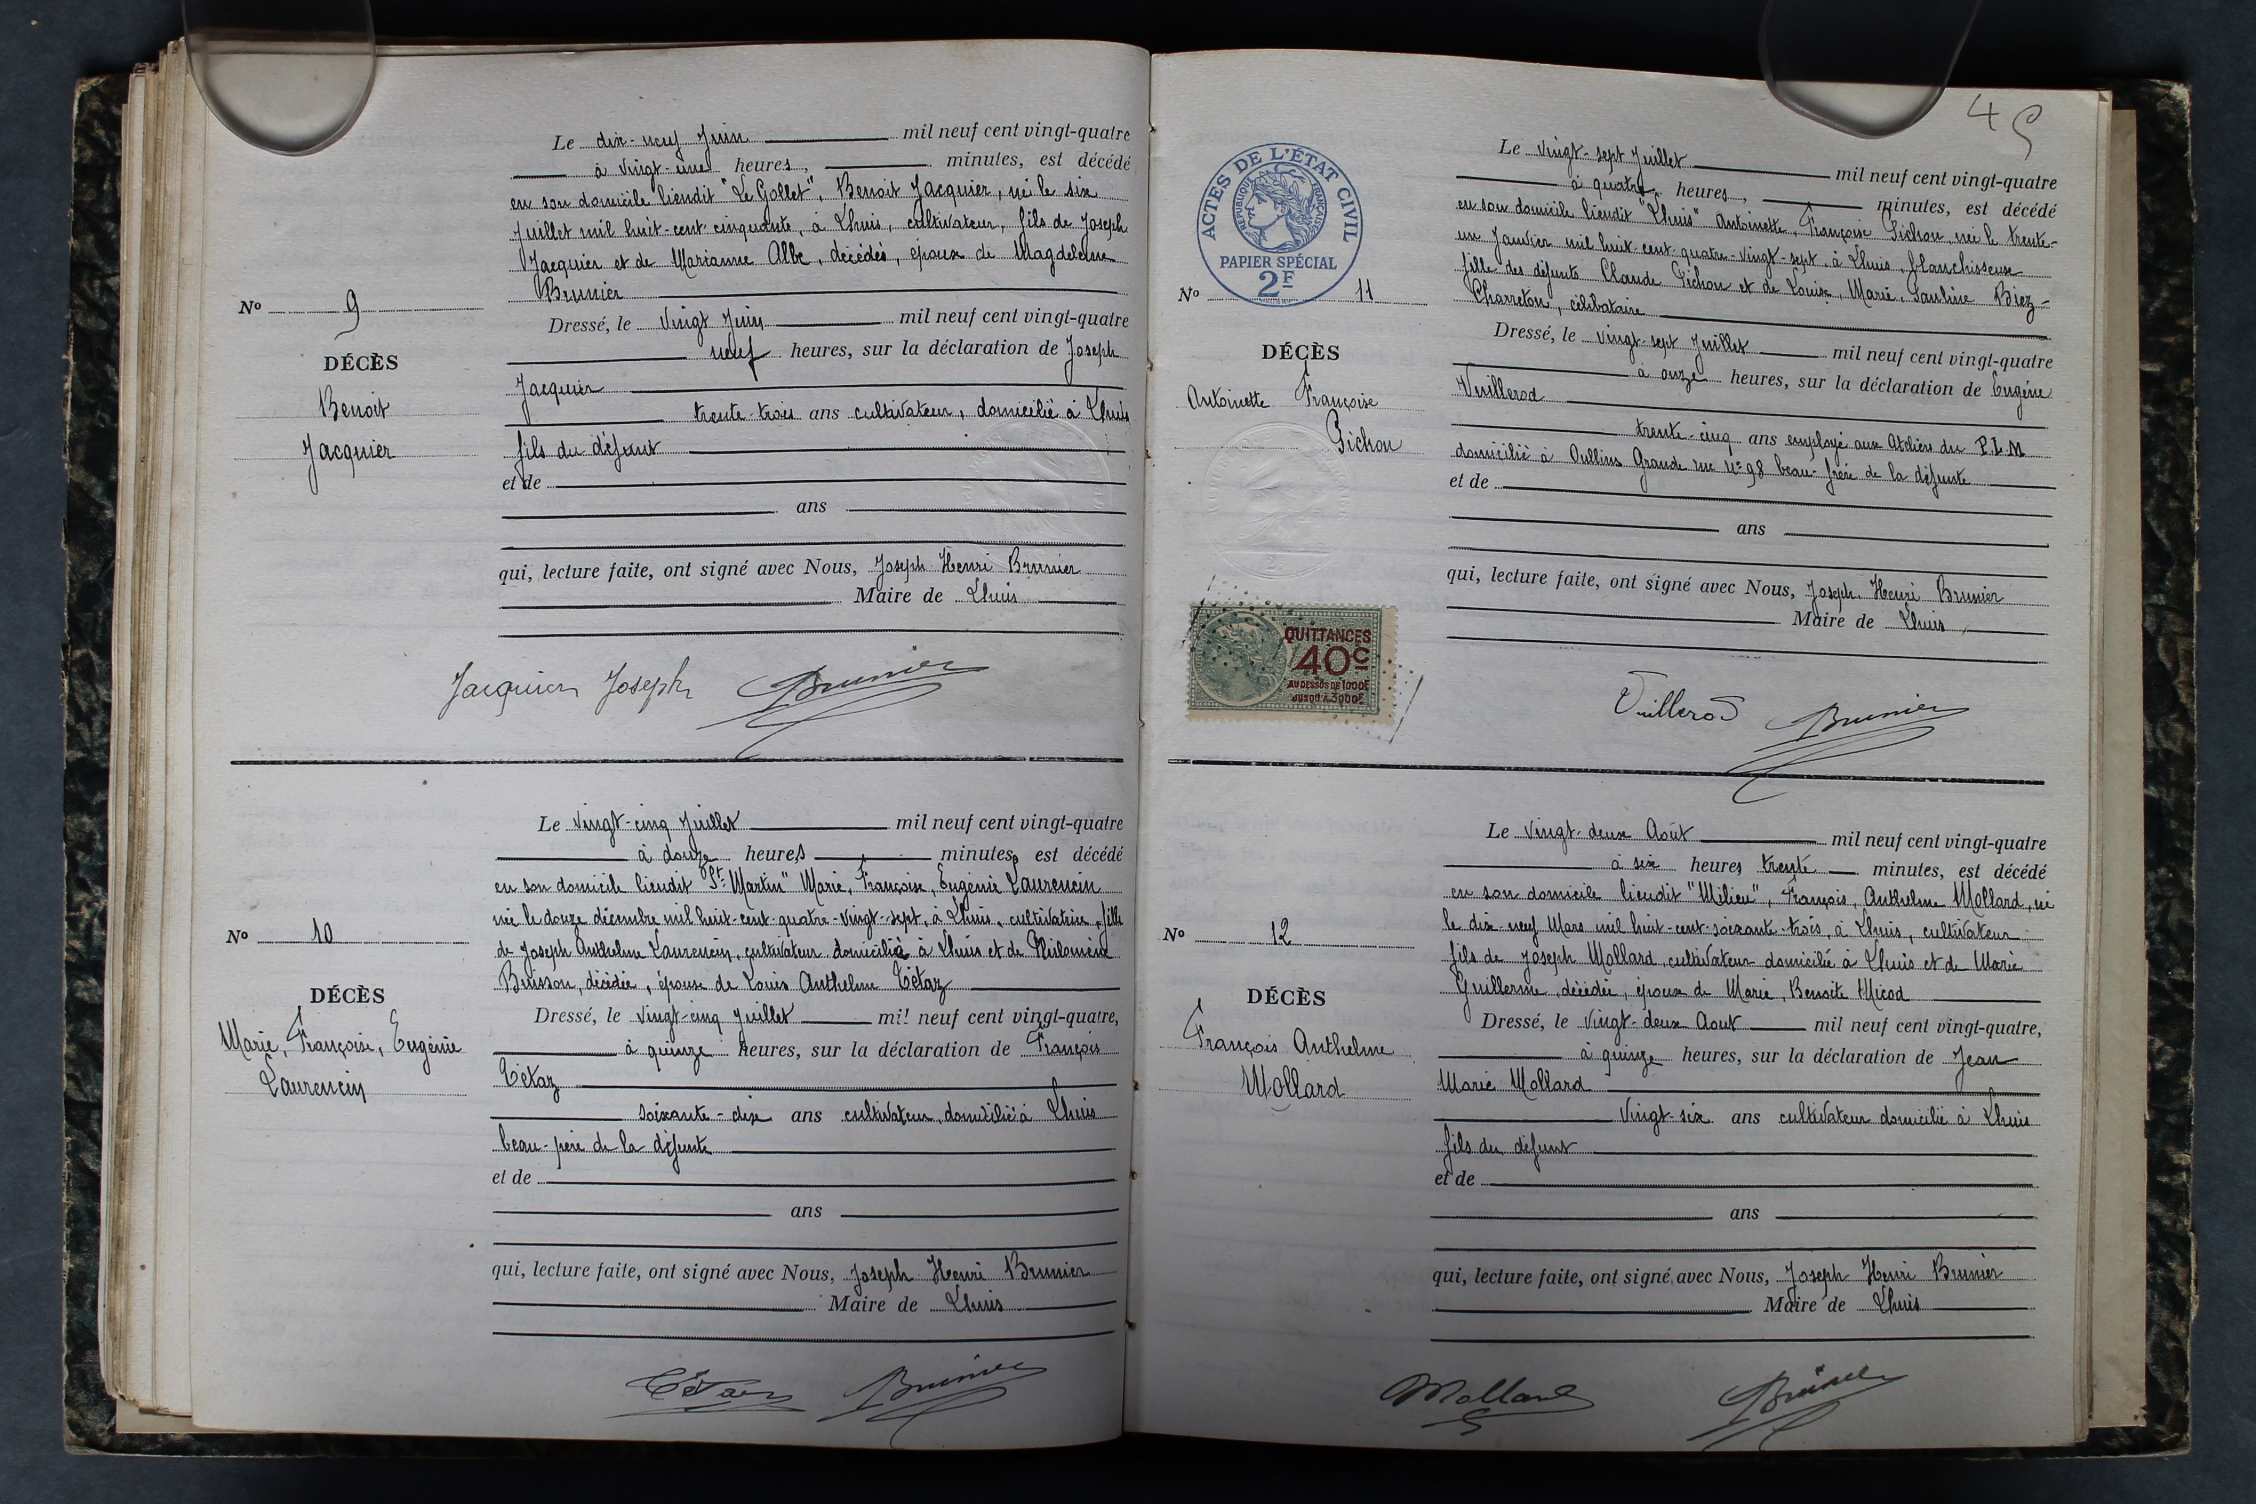 Le dix-neuf Juin mil neuf cent vingt-quatre
à vingt-une heures, minutes, est décédé
en son domicile lieudit "Le Gollet", Benoit Jacquier, né le six
Juillet mil huit-cent-cinquante, à Lhuis, cultivateur, fils de Joseph
Jacquier et de Marianne Albe, décédés, époux de Magdeleine
Brunier
Nº 9
DÉCÈS
Benoit
Jacquier
Dressé, le vingt Juin mil neuf cent vingt-quatre
neuf heures, sur la déclaration de Joseph
Jacquier
trente-trois ans cultivateur, domicilié à Lhuis
fils du défunt
et de
ans
qui, lecture faite, ont signé avec Nous, Joseph Henri Brunier
Maire de Lhuis
Jacquier Joseph Brunier
Le vingt-cinq Juillet mil neuf cent vingt-quatre
à douze heures minutes, est décédé
en son domicile lieudit "St Martin" Marie, Françoise, Eugénie Laurencin
née le douze décembre mil huit-cent-quatre-vingt-sept, à Lhuis, cultivatrice, fille
de Joseph Anthelme Laurencin, cultivateur domicilié à Lhuis et de Philomène
Buisson, décédée, épouse de Louis Anthelme Tétaz
Nº 10
DÉCÈS
Marie, Françoise, Eugénie
Laurencin
Dressé, le vingt-cinq Juillet mil neuf cent vingt-quatre,
à quinze heures, sur la déclaration de François
Tétaz
soixante-dix ans cultivateur, domicilié à Lhuis
beau-père de la défunte
et de
ans
qui, lecture faite, ont signé avec Nous, Joseph Henri Brunier
Maire de Lhuis
Tétaz Brunier
45
ACTES DE L'ÉTAT CIVIL
RÉPUBLIQUE FRANÇAISE
PAPIER SPÉCIAL
2F
Le vingt-sept Juillet mil neuf cent vingt-quatre
à quatre heures, minutes, est décédé
en son domicile lieudit "Lhuis" Antoinette, Françoise Pichon née le trente-
un Janvier mil huit cent-quatre-vingt-sept, à Lhuis, blanchisseuse
fille des défunts Claude Pichon et de Louise, Marie, Pauline Biez-
Charreton, célibataire
Nº 11
DÉCÈS
Antoinette Françoise
Pichon
Dressé, le vingt-sept Juillet mil neuf cent vingt-quatre
à onze heures, sur la déclaration de Eugène
Vuillerod
trente-cinq ans employé aux Ateliers du P.L.M
domicilié à Oullins Grande rue nº 98 beau-frère de la défunte
et de
ans
qui, lecture faite, ont signé avec Nous, Joseph Henri Brunier
Maire de Lhuis
QUITTANCES
40c
AU DESSUS DE 1000F
JUSQU'À 3000F
Vuillerod Brunier
Le vingt-deux Août mil neuf cent vingt-quatre
à six heures trente minutes, est décédé
en son domicile lieudit "Milieu", François, Anthelme Mollard, né
le dix-neuf Mars mil huit-cent-soixante-trois, à Lhuis, cultivateur
fils de Joseph Mollard, cultivateur domicilié à Lhuis et de Marie
Guillerme, décédée, époux de Marie, Benoite Micod
Nº 12
DÉCÈS
François Anthelme
Mollard
Dressé, le vingt-deux Aout mil neuf cent vingt-quatre,
à quinze heures, sur la déclaration de Jean
Marie Mollard
vingt-six ans cultivateur domicilié à Lhuis
fils du défunt
et de
ans
qui, lecture faite, ont signé avec Nous, Joseph Henri Brunier
Maire de Lhuis
Mollard Brunier